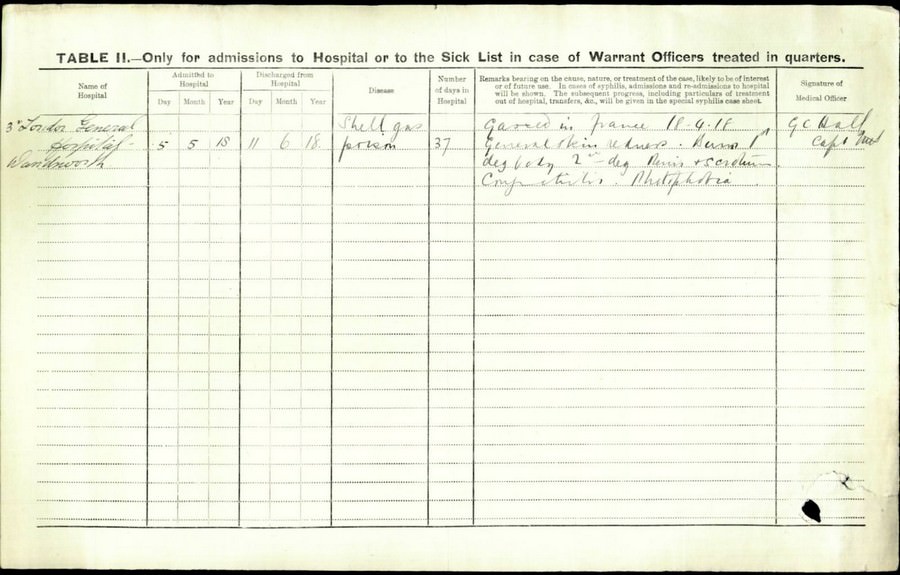 TABLE II.—Only for admissions to Hospital or to the Sick List in case of Warrant Officers treated in quarters.
Name of
Hospital
Admitted to
Hospital
Day Month Year
Discharged from
Hospital
Day Month Year
Disease
Number
of days in
Hospital
Remarks bearing on the cause, nature, or treatment of the case, likely to be of interest
or of future use. In cases of syphilis, admissions and re-admissions to hospital
will be shown. The subsequent progress, including particulars of treatment
out of hospital, transfers, &c., will be given in the special syphilis case sheet.
Signature of
Medical Officer
3rd London General
Hospital
Wandsworth
5 5 18 11 6 18.
Shell gas
poison
37
Gassed in France 18-4-18
General skin redness. Burns 1st
deg body 2nd deg Penis & scrotum
Conjunctivitis. Photophobia
G C Hall
Capt